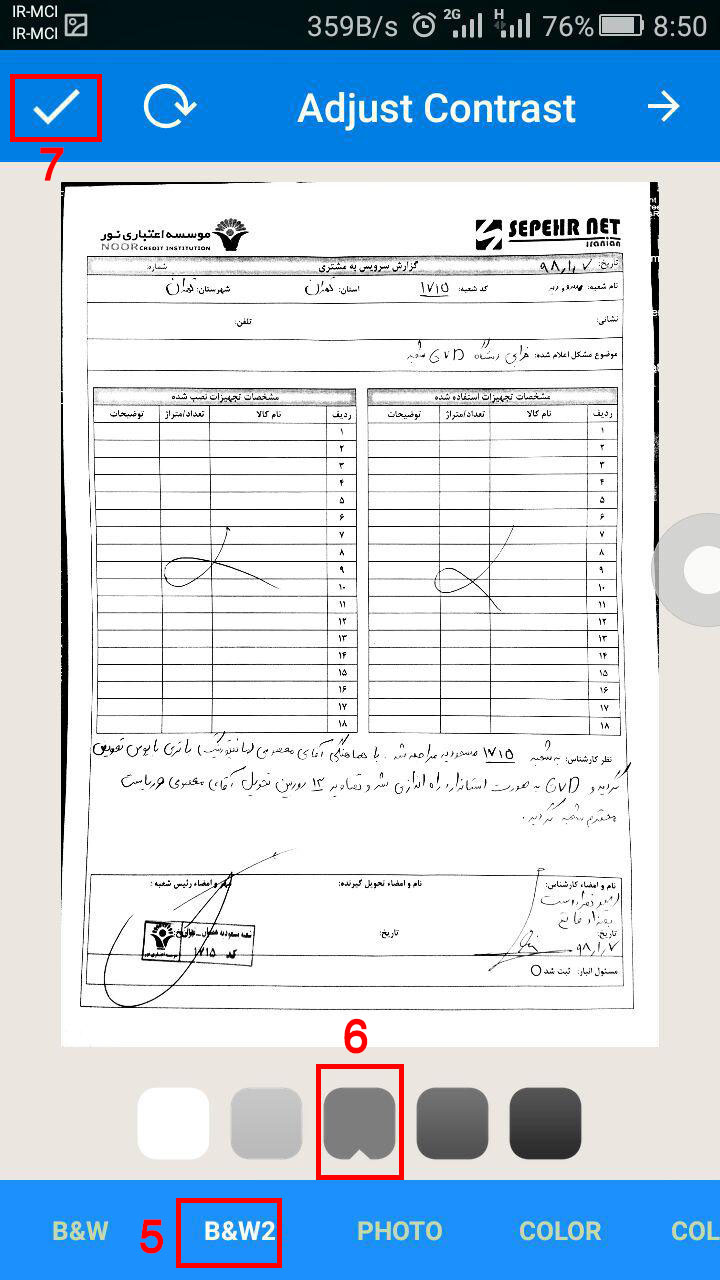 IR-MCI
IR-MCI
359B/s 2G H 76% 8:50
Adjust Contrast
7
موسسه اعتباری نور
NOOR CREDIT INSTITUTION
SEPEHR NET
iranian
گزارش سرویس به مشتری
تاریخ: ۹۸/۱/۷
شماره:
نام شعبه:
کد شعبه: ۱۷۱۵
استان: تهران
شهرستان: تهران
نشانی:
تلفن:
موضوع مشکل اعلام شده: خرابی دستگاه GVD شعبه
مشخصات تجهیزات استفاده شده
ردیف نام کالا تعداد/متراژ توضیحات
۱
۲
۳
۴
۵
۶
۷
۸
۹
۱۰
۱۱
۱۲
۱۳
۱۴
۱۵
۱۶
۱۷
۱۸
مشخصات تجهیزات نصب شده
ردیف نام کالا تعداد/متراژ توضیحات
۱
۲
۳
۴
۵
۶
۷
۸
۹
۱۰
۱۱
۱۲
۱۳
۱۴
۱۵
۱۶
۱۷
۱۸
نظر کارشناس: به شعبه ۱۷۱۵ مسعودیه مراجعه شد. با هماهنگی آقای معصومی باتری بایوس تعویض
گردید و GVD به صورت استاندارد راه اندازی شد و تصاویر ۱۳ دوربین تحویل آقای معصومی ریاست
محترم شعبه گردید.
نام و امضاء کارشناس:
تاریخ:
۹۸/۱/۷
نام و امضاء تحویل گیرنده:
تاریخ:
مهر و امضاء رئیس شعبه:
شعبه مسعودیه
کد ۱۷۱۵
مسئول انبار: ثبت شد
6
5
B&W
B&W2
PHOTO
COLOR
COL